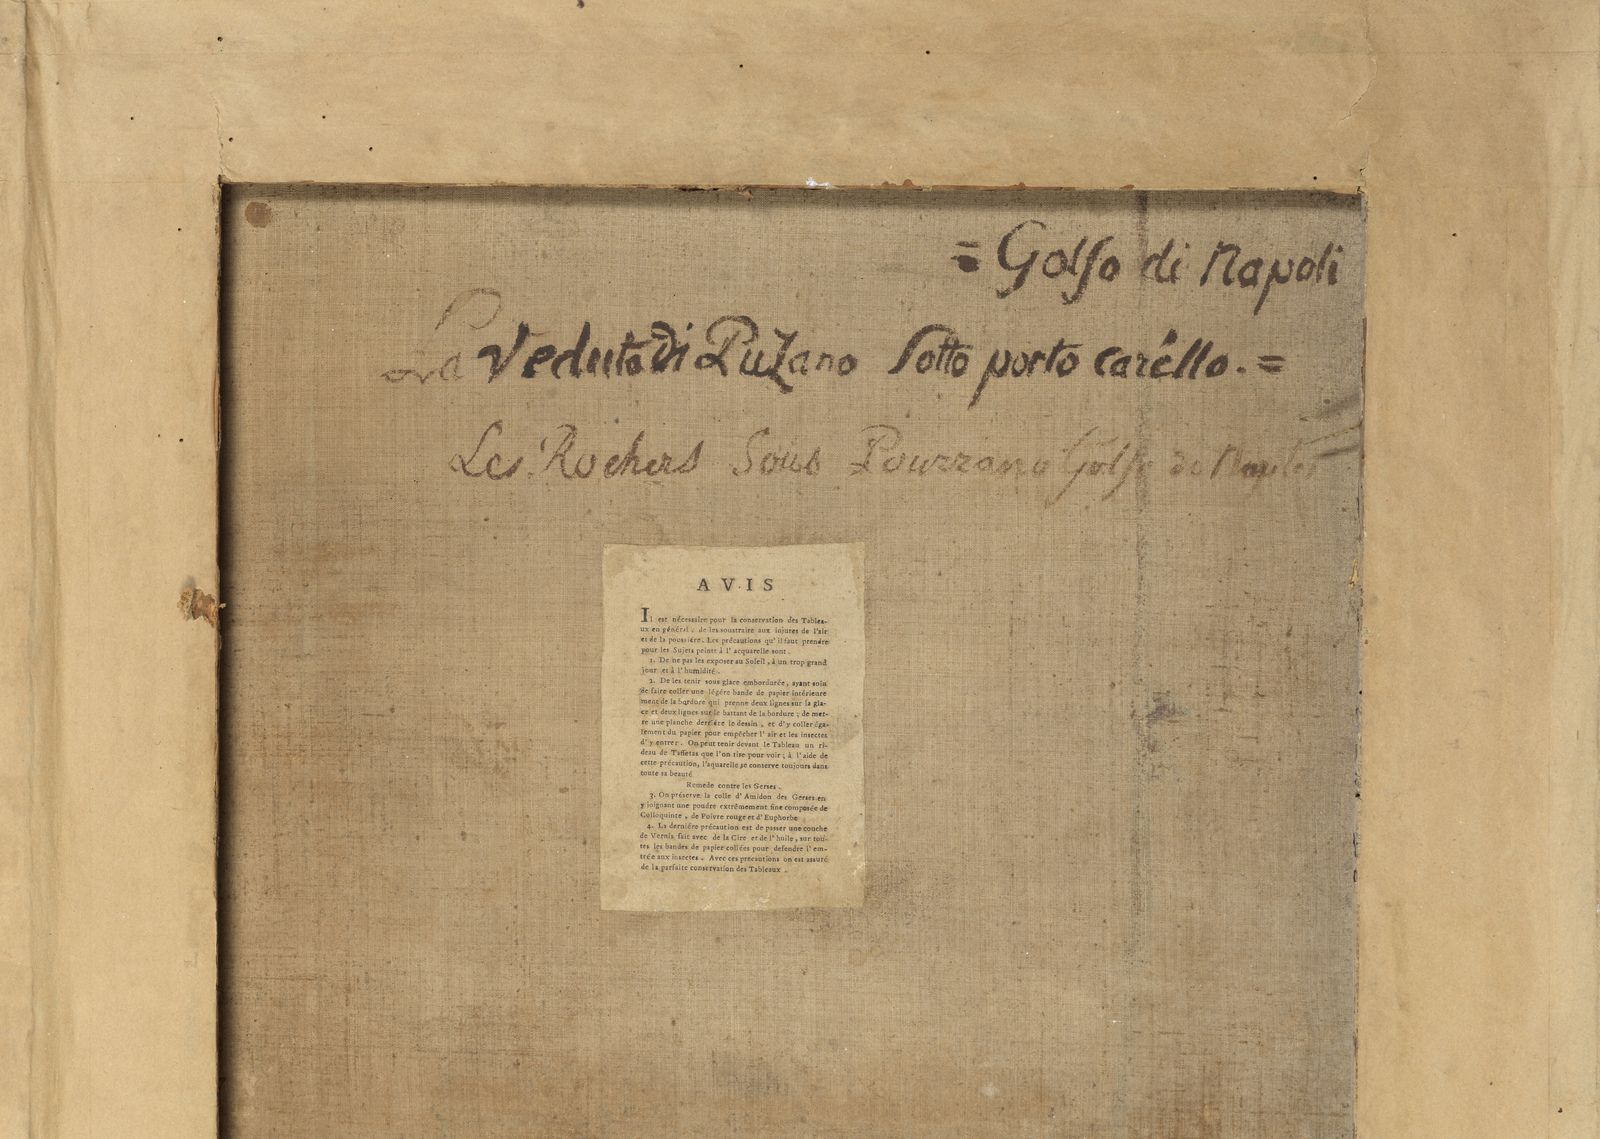 = Golfo di Napoli
La Veduta di PuZano Sotto porto caréllo. =
Les Rochers Sous Pouzzano Golfe de Naples
AVIS
Il est nécessaire pour la conservation des Tablea-
ux en général, de les soustraire aux injures de l'air
et de la poussiére. Les précautions qu'il faut prendre
pour les Sujets peints à l'acquarelle sont.
1. De ne pas les exposer au Soleil, à un trop grand
jour et à l'humidité.
2. De les tenir sous glace embordurée, ayant soin
de faire coller une légére bande de papier intérieure
ment de la bordure qui prenne deux lignes sur la gla-
ce et deux lignes sur le battant de la bordure; de met-
re une planche derriére le dessin, et d'y coller éga-
lement du papier pour empêcher l'air et les insectes
d'y entrer. On peut tenir devant le Tableau un ri-
deau de Taffetas que l'on tire pour voir; à l'aide de
cette précaution, l'aquarelle se conserve toujours dans
toute sa beauté
Remede contre les Gerses.
3. On préserve la colle d'Amidon des Gerses en
y joignant une poudre extrêmement fine composée de
Colloquinte, de Poivre rouge et d'Euphorbe
4. La derniére précaution est de passer une couche
de Vernis fait avec de la Cire et de l'huile, sur tou-
tes les bandes de papier collées pour defendre l'en-
trée aux insectes. Avec ces precautions on est assuré
de la parfaite conservation des Tableaux.